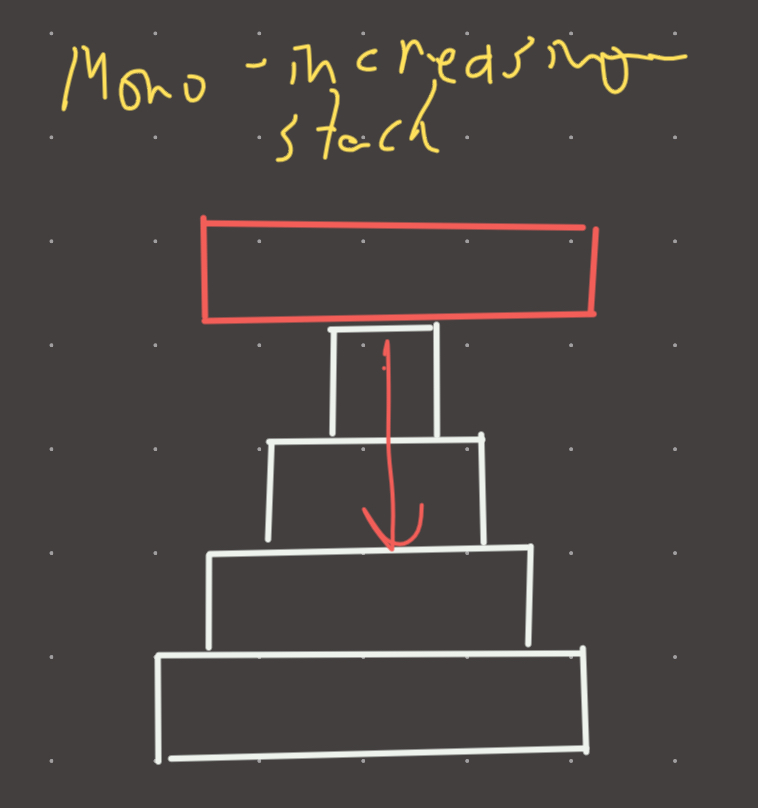 Mono - increasing
stack